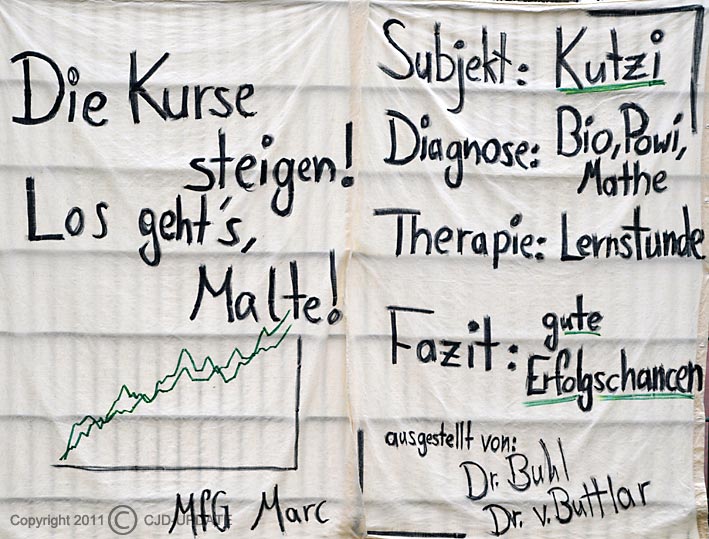 Die Kurse
steigen!
Los geht's,
Malte!
MfG Marc
Subjekt: Kutzi
Diagnose: Bio, Powi,
Mathe
Therapie: Lernstunde
Fazit: gute
Erfolgschancen
ausgestellt von:
Dr. Buhl
Dr. v. Buttlar
Copyright 2011 © CJD-UPDATE